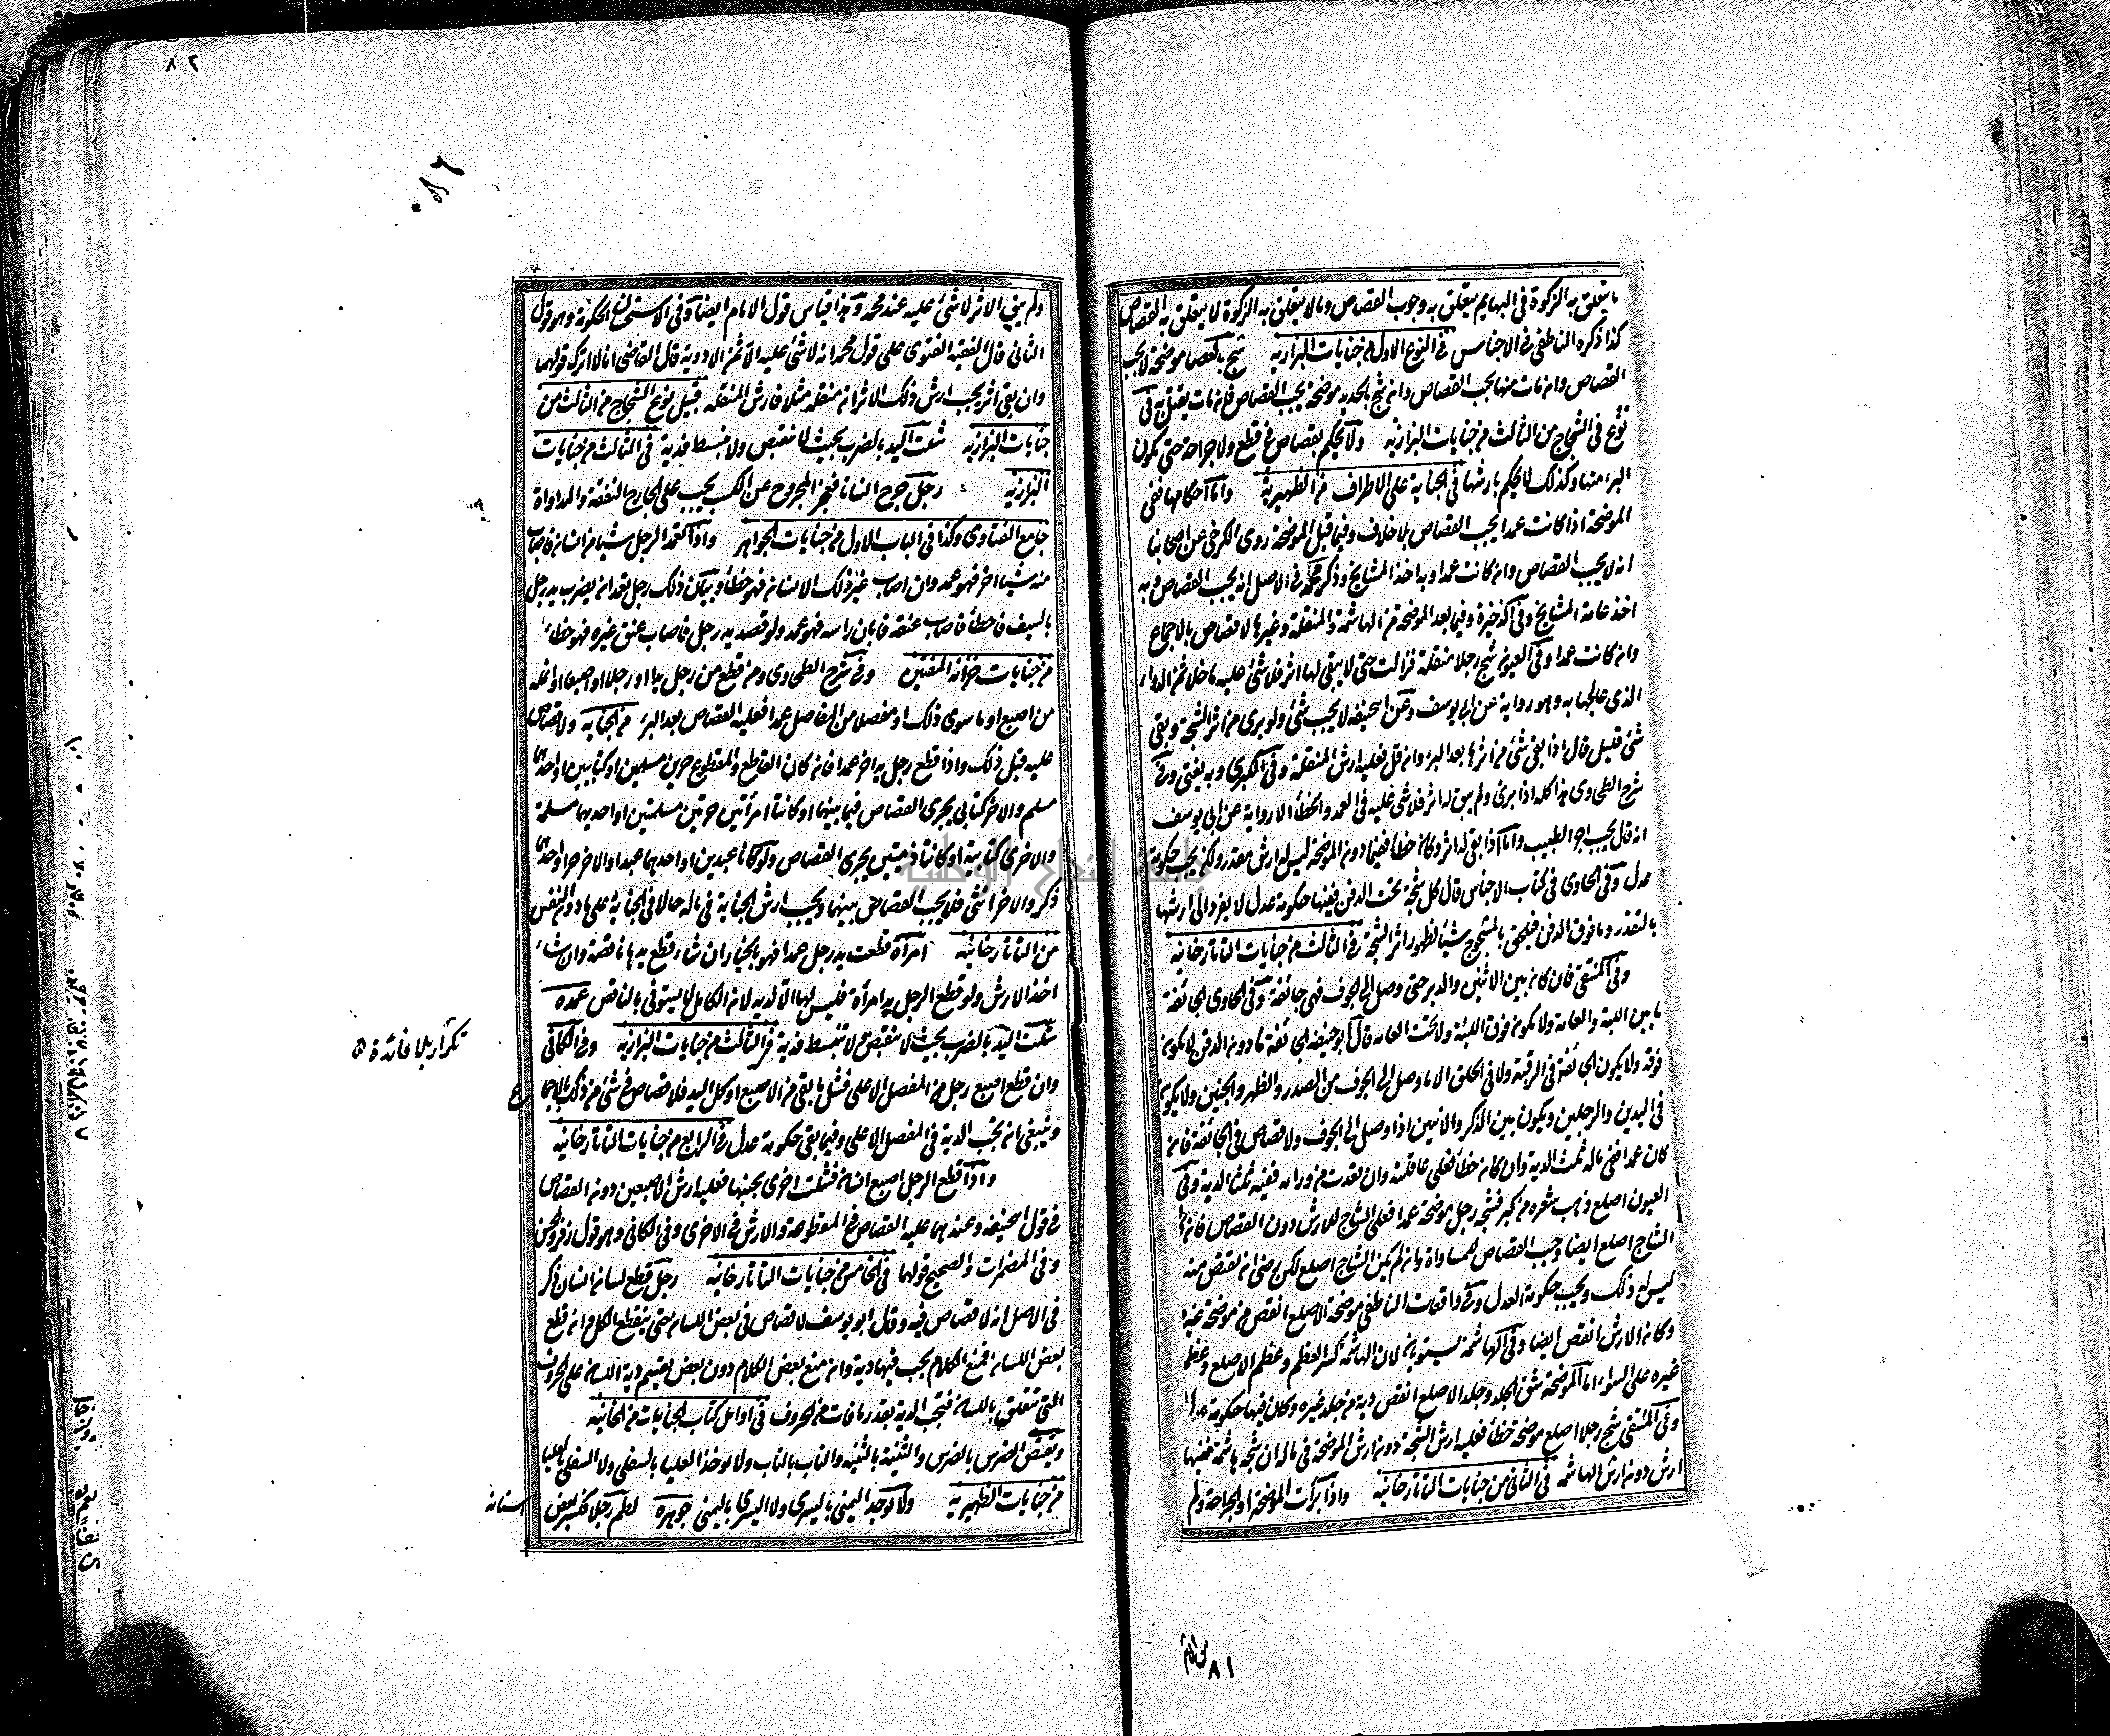 ما يتعلق به الزكوة في البهايم يتعلق به وجوب القصاص ومالا يتعلق به الزكوة لا يتعلق به القصاص
كذا ذكره الناطفي في الاجناس في النوع الاول من جنايات البزازيه شج بالعصا موضحة لا يجب
القصاص وان مات منها يجب القصاص وان شج بالحديد موضحة يجب القصاص فان مات يقتل به في
نوع في الشجاج من الثالث من جنايات البزازيه ولا يحكم بقصاص في قطع ولا جراحة حتى يكون
البرء منها وكذلك لا يحكم بارشها في الجناية على الاطراف من الظهيرية واما احكامها ففي
الموضحة اذا كانت عمدا يجب القصاص بلا خلاف وفيما قبل الموضحة روى الكرخي عن اصحابنا
انه لا يجب القصاص وان كانت عمدا وبه اخذ المشايخ وذكر محمد في الاصل انه يجب القصاص وبه
اخذ عامة المشايخ وفي الذخيرة وفيما بعد الموضحة من الهاشمة والمنقلة وغيرها لا قصاص بالاجماع
وان كانت عمدا وفي العيون شج رجلا منقلة فزالت حتى لا يبقى لها اثر فلا شئ عليه ما خلا ثمن الدواء
الذي عالجها به وهو رواية عن ابي يوسف وعن ابي حنيفه لا يجب شئ ولو برى من اثر الشجة وبقى
شئ قليل قال اذا بقى شئ من اثرها بعد البرء وان قل فعليه ارش المنقلة وفي الكبرى وبه يفتى وفي
شرح الطحاوى هذا كله اذا برئ ولم يبق له اثر فلا شئ عليه في العمد والخطأ الا رواية عن ابي يوسف
انه قال يجب اجر الطبيب واما اذا بقى له اثر وكان خطأ ففيما دون الموضحة ليس له ارش مقدر ولكن يجب حكومة
عدل وفي الحاوى في كتاب الاجناس قال كل شجة تحت الدقن ففيها حكومة عدل لا يفرد الى ارشها
بالتقدير وما فوق الدقن فيلحق بالمشجوج شينا لظهور اثر الشجة في الثالث من جنايات التاتارخانيه
وفي المنتقى فان كان بين الانثيين والدبر حتى وصل الى الجوف فهى جائفة وفي الحاوى الجائفة
ما بين اللبة والعانة ولا يكون فوق اللبة ولا تحت العانه قال ابو حنيفه الجائفة ما دون الدقن لا يكون
فوقه ولا يكون الجائفة في الرقبة ولا في الحلق الا ما وصل الى الجوف من الصدر والظهر والجنبين ولا يكون
في اليدين والرجلين ويكون بين الذكر والانثيين اذا وصل الى الجوف ولا قصاص في الجائفة فان
كان عمدا ففي ماله ثلث الدية وان كان خطأ فعلى عاقلته وان نفذت من ورائه ففيه ثلثا الدية وفي
العيون اصلع ذهب شعره من كبر فشجه رجل موضحة عمدا فعلى الشاج للارش دون القصاص فان كان
الشاج اصلع ايضا وجب القصاص للمساواة وان لم يكن الشاج اصلع لكن رضى ان يقتص منه
ليس له ذلك ويجب حكومة العدل وفي واقعات الناطفي موضحة الاصلع انقص من موضحة غيره
وكان الارش انقص ايضا وفي الهاشمة يستويان لان الهاشمة كسر العظم وعظم الاصلع وعظم
غيره على السواء اما الموضحة شق الجلد وجلد الاصلع انقص دية من جلد غيره وكان فيها حكومة عدل
وفي المنتقى شج رجلا اصلع موضحة خطأ فعليه ارش الشجة دون ارش الموضحة في ماله ان شجه هاشمة ففيها
ارش دون ارش الهاشمه في الثاني من جنايات التاتارخانيه واذا برأت الموضحة او الجراحة ولم
من الاثر
٨١
٨٢
٠٨٢
ولم يبق الاثر لا شئ عليه عند محمد وهذا قياس قول الامام ايضا وفي الاستحسان الحكومة وهو قول
الثاني قال الفقيه الفتوى على قول محمد انه لا شئ عليه الا ثمن الادوية قال القاضى انا لا اترك قولهما
وان بقى اثر يجب ارش ذلك الاثر ان منقله مثلا فارش المنقله قبيل نوع الشجاج من الثالث من
جنايات البزازيه شلت اليد بالضرب بحيث لا تنقبض ولا تنبسط فدية في الثالث من جنايات
البزازيه رجل جرح انسانا فعجز المجروح عن الكسب يجب على الجارح النفقة والمداواة
جامع الفتاوى وكذا في الباب الاول من جنايات الجواهر واذا تعمد الرجل شيئا من انسان فاصاب
منه شيئا اخر فهو عمد وان اصاب غير ذلك الانسان فهو خطأ وبيان ذلك رجل تعمد ان يضرب يد رجل
بالسيف فاخطأ فاصاب عنقه فابان راسه فهو عمد ولو قصد يد رجل فاصاب عنق غيره فهو خطاء
من جنايات خزانة المفتين وفي شرح الطحاوى ومن قطع من رجل يدا او رجلا او اصبعا او انملة
من اصبع او ما سوى ذلك او مفصلا من المفاصل عمدا فعليه القصاص بعد البرء من الجناية ولا قصاص
عليه قبل ذلك واذا قطع رجل يد اخر عمدا فان كان القاطع والمقطوع حرين مسلمين او كتابيين او احدهما
مسلم والاخر كتابي يجرى القصاص فيما بينهما او كانتا امرأتين حرتين مسلمتين او احديهما مسلمة
والاخرى كتابية او كانتا ذميتين يجرى القصاص ولو كانا عبدين او احدهما عبدا والاخر حرا او احدهما
ذكر والاخر انثى فلا يجب القصاص بينهما ويجب ارش الجناية في ماله حالا في الجناية على ما دون النفس
من التاتارخانيه امرأة قطعت يد رجل عمدا فهو بالخيار ان شاء قطع يدها ناقصة وان شاء
اخذ الارش ولو قطع الرجل يد امرأة فليس لها الا الدية لان الكامل لا يستوفى بالناقص عمده
شلت اليد بالضرب بحيث لا تنقبض ولا تنبسط فدية في الثالث من جنايات البزازيه وفي الكافي
تكرار بلا فائدة
وان قطع اصبع رجل من المفصل الاعلى فشل ما بقى من الاصبع او كل اليد فلا قصاص في شئ من ذلك بالاجماع
وينبغى ان يجب الدية في المفصل الاعلى وفيما بقى حكومة عدل في الرابع من جنايات التاتارخانيه
واذا قطع الرجل اصبع انسان فشلت اخرى بجنبها فعليه ارش الاصبعين دون القصاص
في قول ابي حنيفه وعندهما عليه القصاص في المقطوعة والارش في الاخرى وفي الكافي وهو قول زفر والحسن
وفي المضمرات والصحيح قولهما في الخامس من جنايات التاتارخانيه رجل قطع لسان انسان ذكر
في الاصل انه لا قصاص فيه وقال ابو يوسف لا قصاص في بعض اللسان حتى يقطع الكل وان قطع
بعض اللسان فمنع الكلام يجب فيها دية وان منع بعض الكلام دون بعض يقسم دية اللسان على الحروف
التى تتعلق باللسان فتجب الدية بقدر ما فات من الحروف في اوائل كتاب الجنايات من الخانيه
ويقتص الضرس بالضرس والثنية بالثنيه والناب بالناب ولا يوخذ العليا بالسفلى ولا السفلى بالعليا
من جنايات الظهيريه ولا توخذ اليمنى باليسرى ولا اليسرى باليمنى جوهره لطم رجلا فكسر بعض
اسنانه